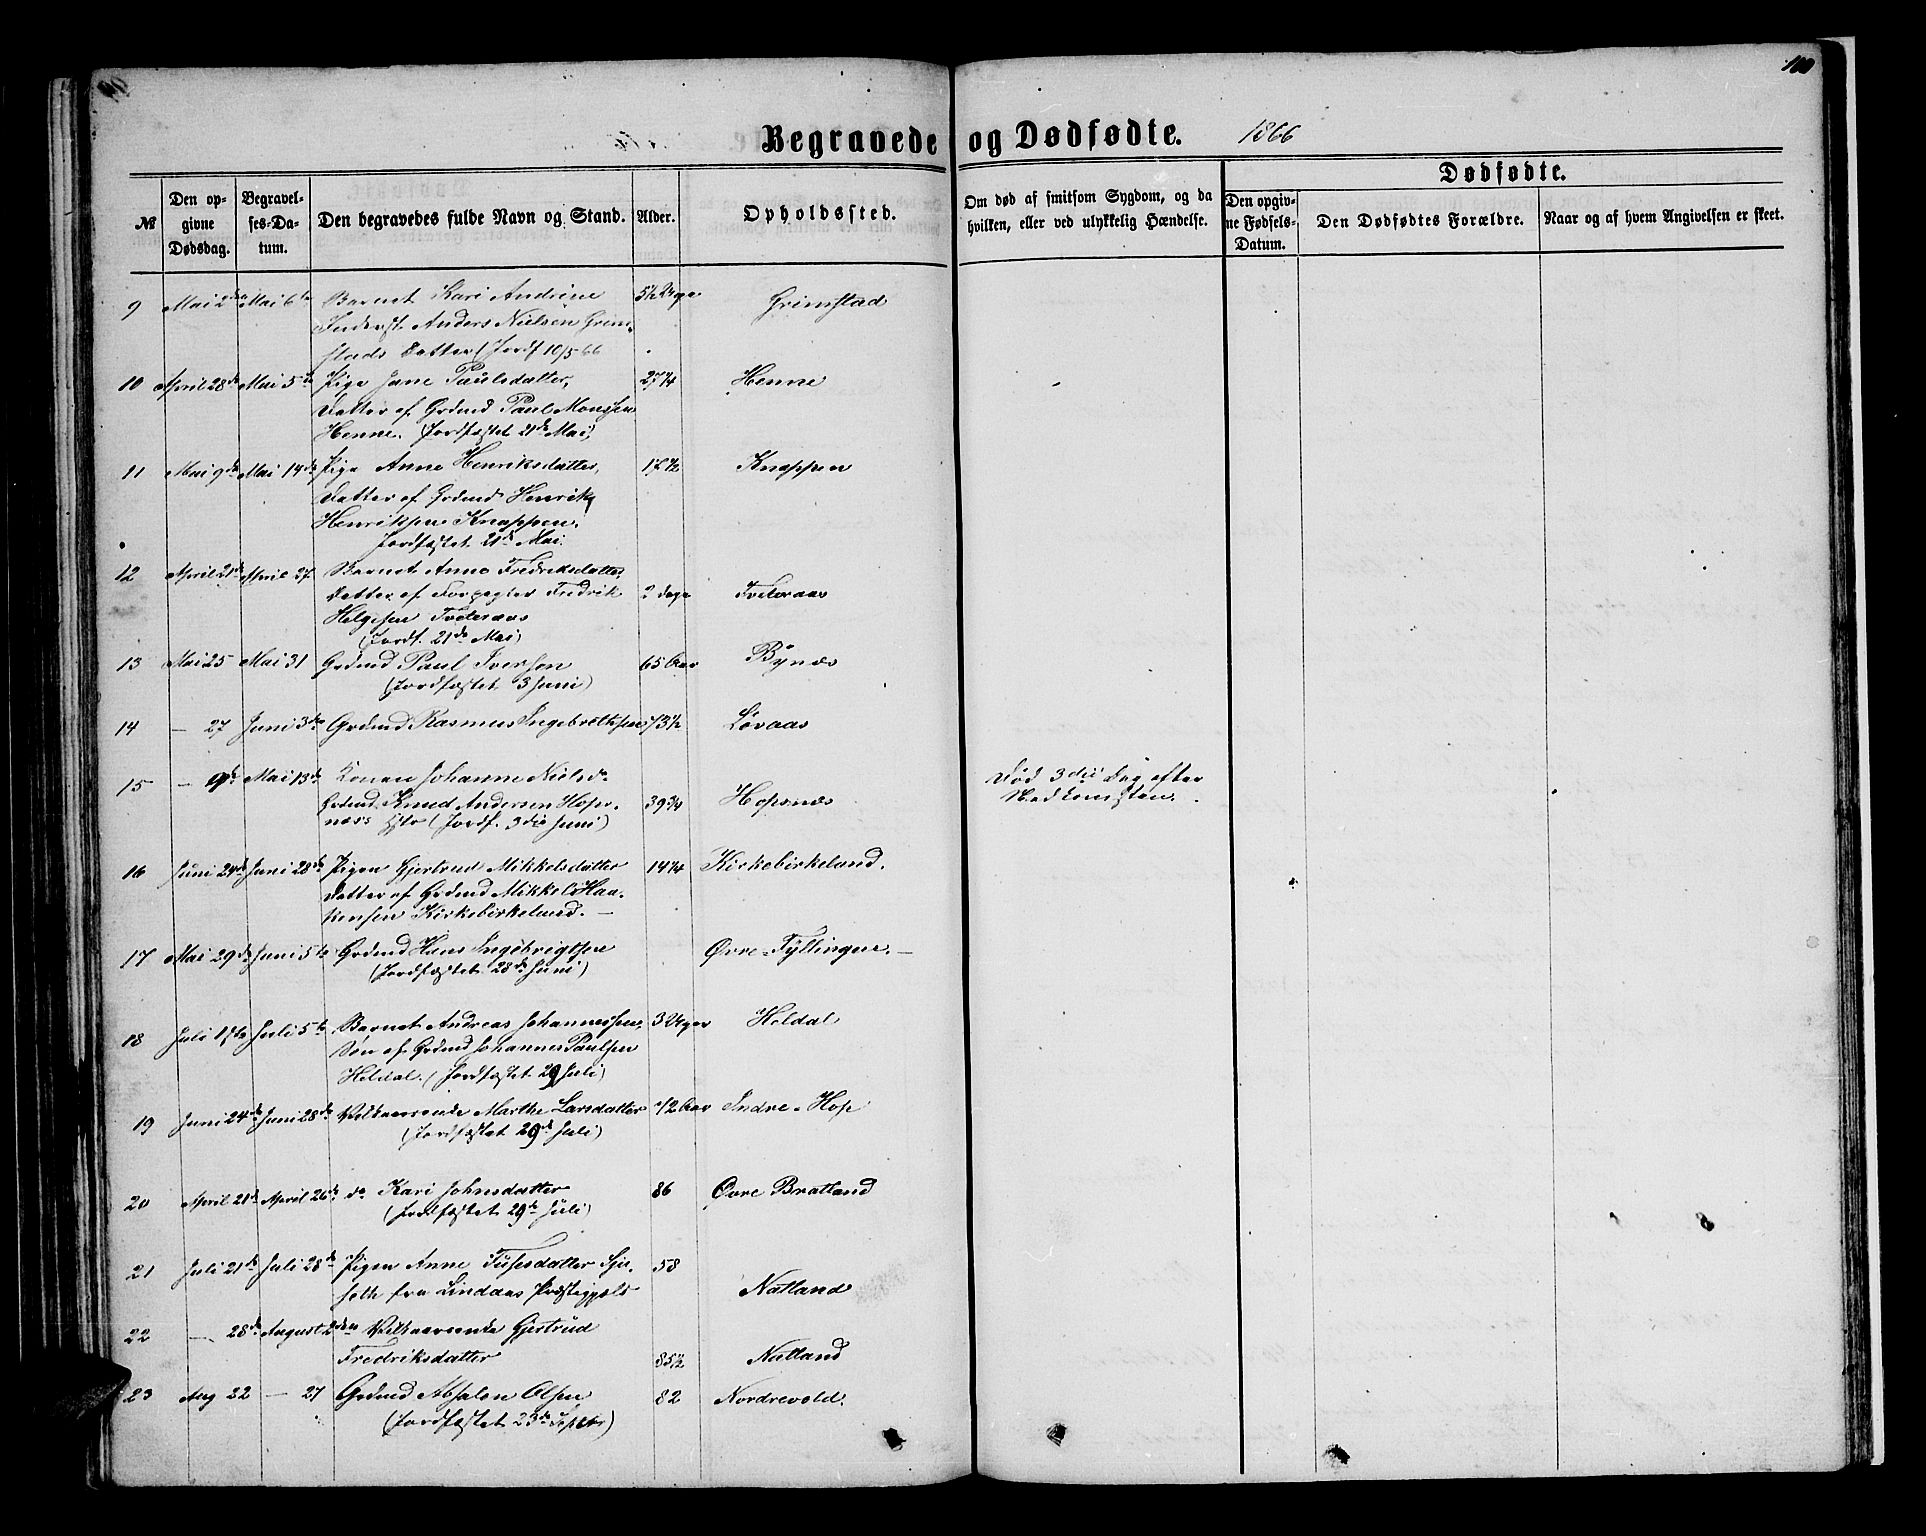 100
Begravede og Dødfødte. 1866
Dødfødte.
№
Den opgivne Dødsdag.
Begravelses-Datum.
Den begravedes fulde Navn og Stand.
Alder.
Opholdssted.
Om død af smitsom Sygdom, og da hvilken, eller ved ulykkelig Hændelse.
Den opgivne Fødsels-Datum.
Den Dødfødtes Forældre.
Naar og af hvem Angivelsen er skeet.
9 Mai 2den Mai 6te Barnet Kari Andrine 5½ Uge Grimstad
Inderst Anders Nielsen Grimstads Datter (Jordf 10/5 66
10 April 28de Mai 5te Pige Jane Paulsdatter, 27¼ Henne
Datter af Grdmd Paul Monssen
Henne. (Jordfæstet 21de Mai)
11 Mai 9de Mai 14de Pige Anne Henriksdatter, 17½ Knappen
Datter af Grdmd Henrik
Henriksen Knappen.
Jordfæstet 21de Mai.
12 April 21de April 27 Barnet Anna Fredriksdatter,
Datter af Forpagter Fredrik 2 Dage Tveteraas
Helgesen Tveteraas
(Jordf. 21de Mai)
13 Mai 25 Mai 31 Grdmd Paul Iverson 65 Aar Bynæs
(Jordfæstet 3 Juni)
14 — 27 Juni 3die Grdmd Rasmus Ingebrethsen 73½ Løvaas
15 — 9de Mai 13de Konen Johanne Nielsdr Død 3die Dag efter
Grdmd. Knud Andersen Hops- 39¾ Hopsnæs Nedkomsten.
næss Hstr (Jordf. 3die Juni)
16 Juni 24de Juni 28de Pigen Gjertrud Mikkelsdatter 14¼ Kirkebirkeland.
Datter af Grdmd Mikkel Haa-
kensen Kirkebirkeland. —
17 Mai 29de Juni 5te Grdmd Hans Ingebrigtsen Øvre-Tyllingen. —
(Jordfæstet 28de Juni)
18 Juli 1ste Juli 5te Barnet Andreas Johannessen, 3 Uger Heldal
Søn af Grdmd Johannes Paulsen
Heldal. (Jordfæstet 29 Juli)
19 Juni 24de Juni 28de Vilkaarende Marthe Larsdatter 72 Aar Indre-Hop
(Jordfæstet 29de Juli)
20 April 21de April 26de do Kari Johnsdatter 86 Øvre Bratland
(Jordfæstet 29de Juli)
21 Juli 21de Juli 28de Pigen Anne 58
fra Lindaas Præstegjeld Natland
22 — 28de August 2den Vilkaarende Gjertrud
Fredriksdatter 85½ Natland
23 Aug 22 — 27 Grdmd Absalon Olsen 82 Nordrevold.
(Jordfæstet 23de Septbr)